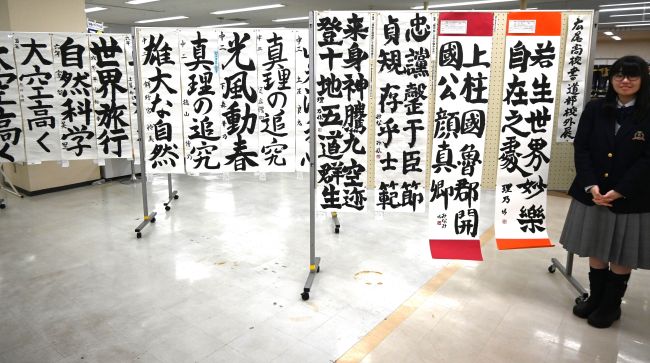 広尾高校書道部校外展
若生世界妙樂
自在之處
理乃
上柱國魯郡開
國公顔真卿
みなみ
忠讜罄于臣節
貞規存乎士範
来身神騰九空迹
登十地五道群生
真理の追究
光風動春
真理の追究
雄大な自然
世界旅行
自然科学
大空高く
大空高く